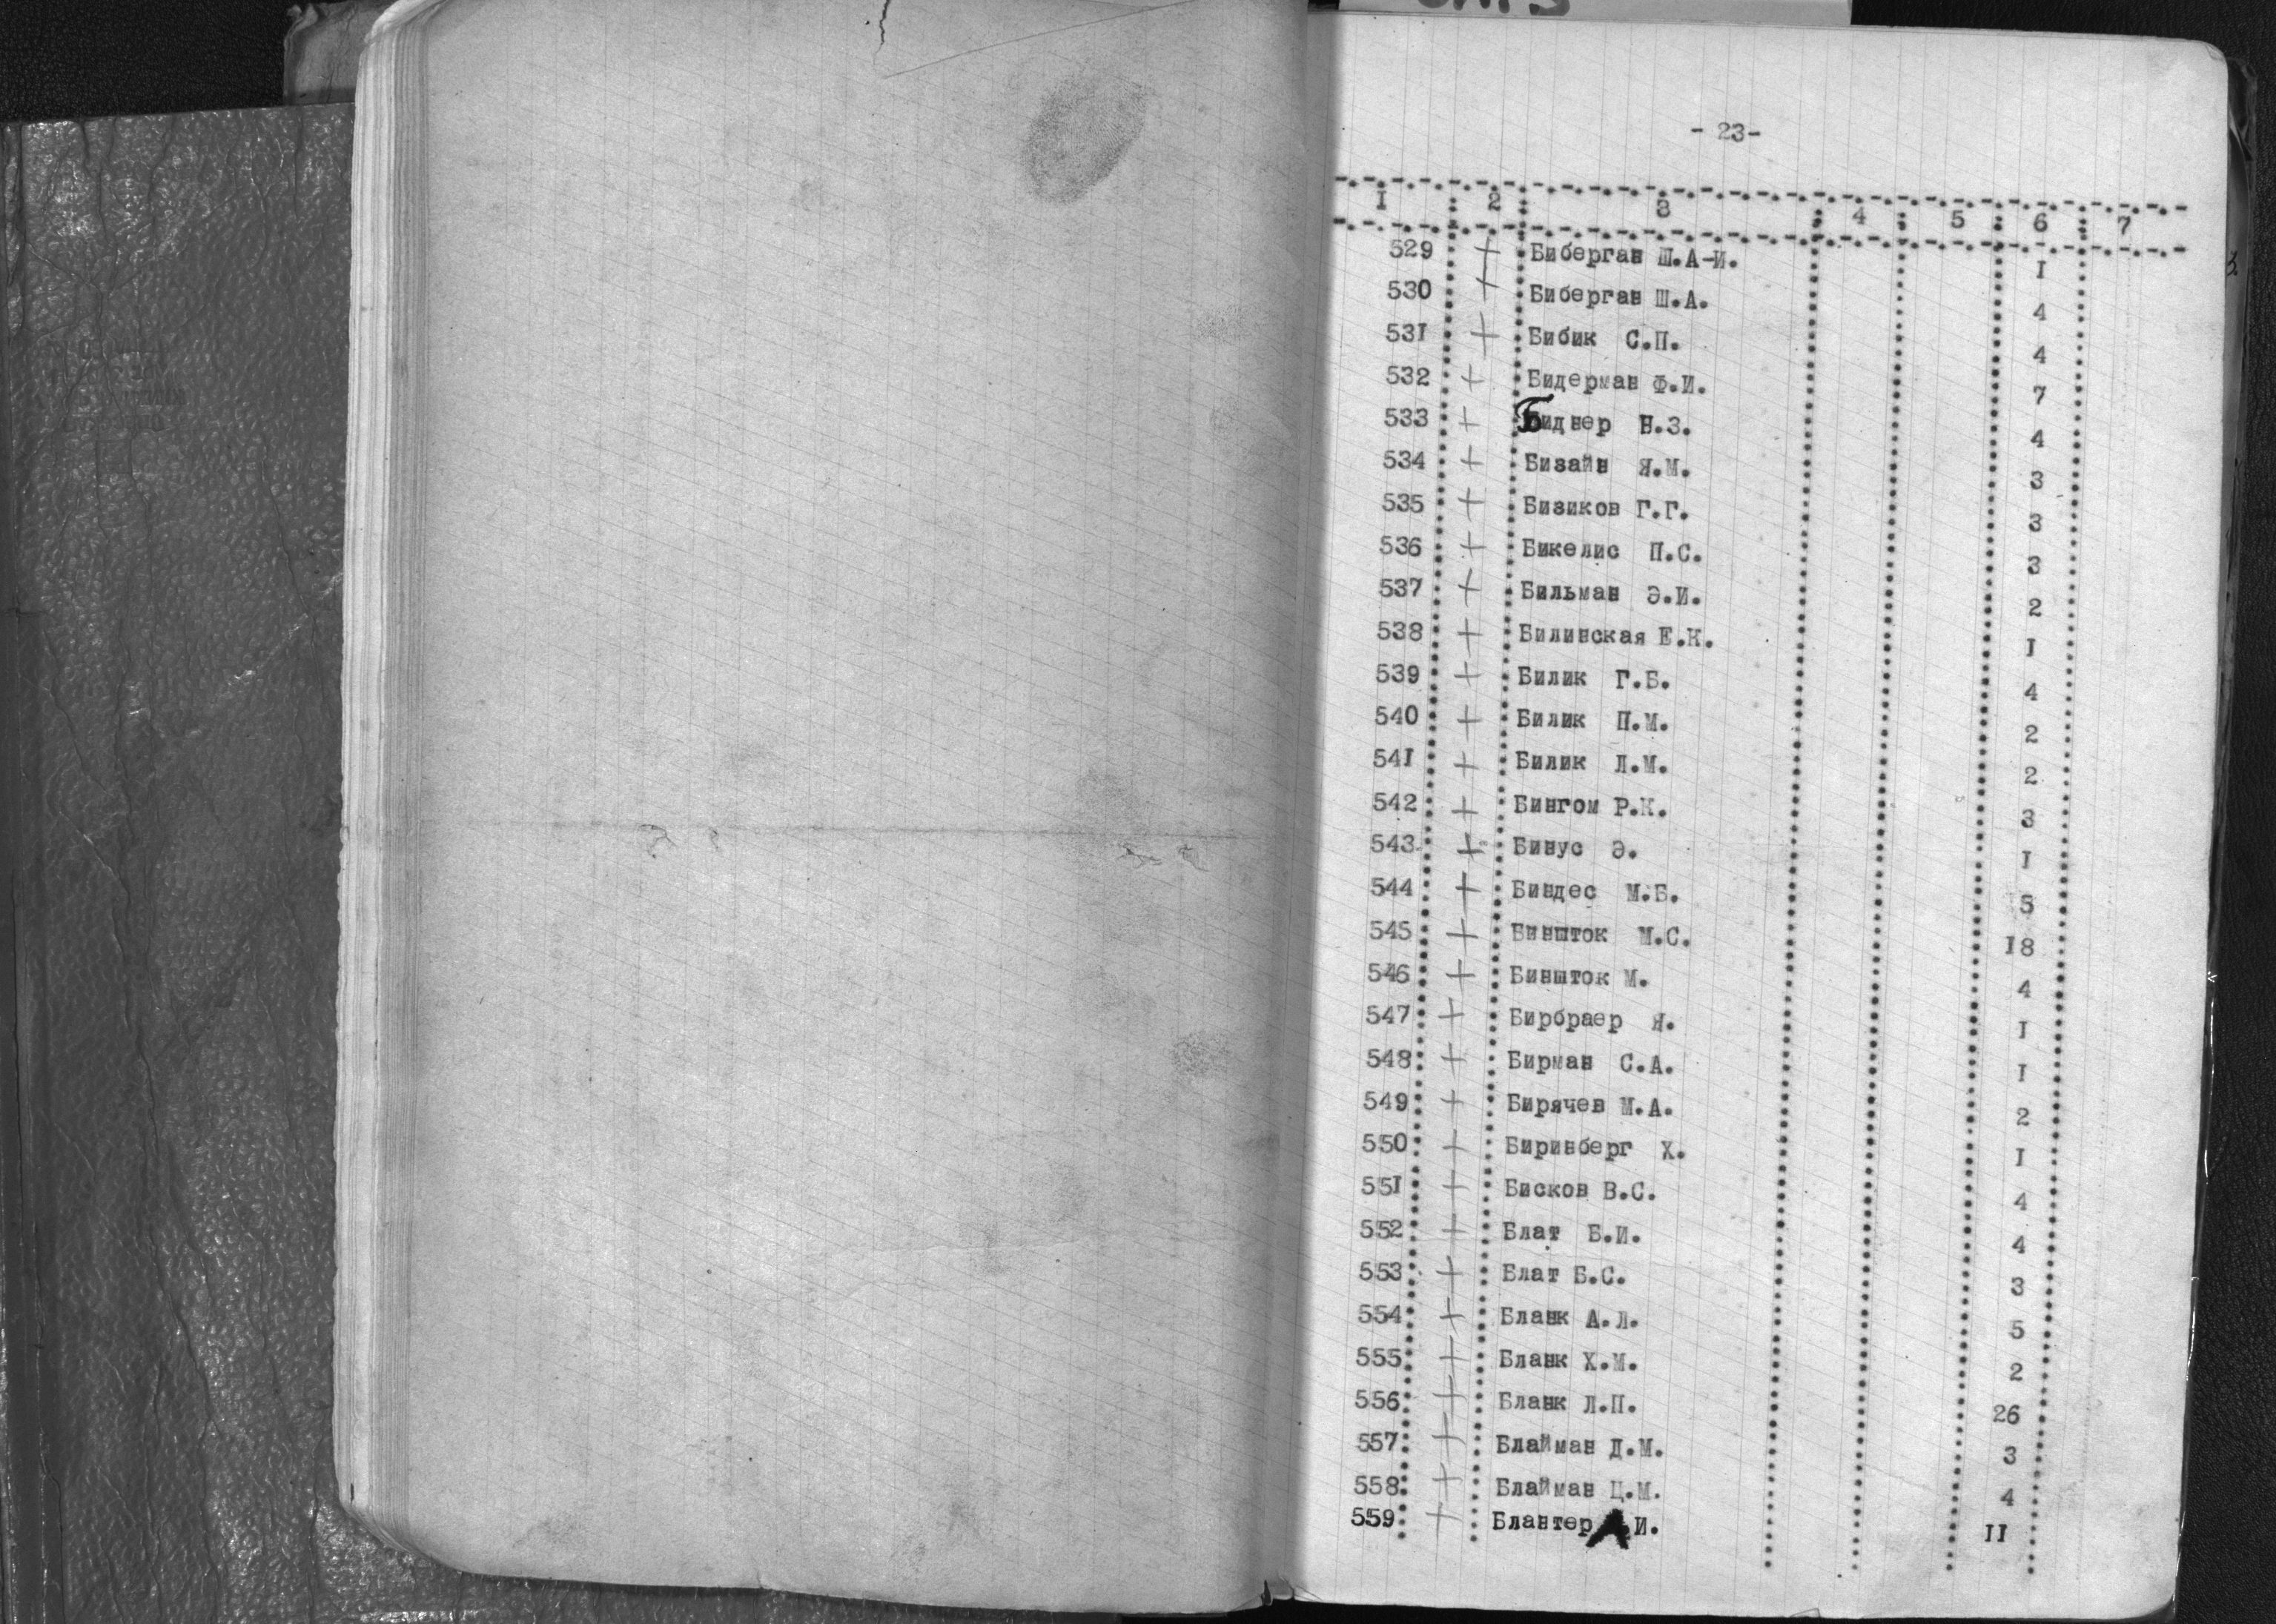 - 23-
I 2 3 4 5 6 7
529 + Биберган Ш.А-И. I
530 + Биберган Ш.А. 4
531 + Бибик С.П. 4
532 + Бидерман Ф.И. 7
533 + Биднер Н.З. 4
534 + Бизайн Я.М. 3
535 + Бизиков Г.Г. 3
536 + Бикелис П.С. 3
537 + Бильман Э.И. 2
538 + Билинская Е.К. I
539 + Билик Г.Б. 4
540 + Билик П.М. 2
541 + Билик Л.М. 2
542 + Бингом Р.К. 3
543 + Бинус Э. I
544 + Биндес М.Б. 5
545 + Биншток М.С. I8
546 + Биншток М. 4
547 + Бирбраер Я. I
548 + Бирман С.А. I
549 + Бирячев М.А. 2
550 + Биринберг Х. I
551 + Бисков В.С. 4
552 + Блат Б.И. 4
553 + Блат Б.С. 3
554 + Бланк А.Л. 5
555 + Бланк Х.М. 2
556 + Бланк Л.П. 26
557 + Блайман Д.М. 3
558 + Блайман Ц.М. 4
559 + Блантер А И. II